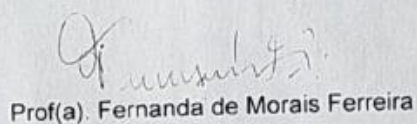 Prof(a). Fernanda de Morais Ferreira